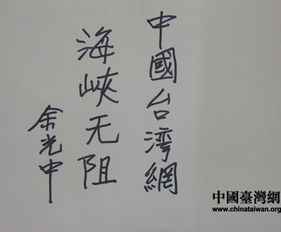 中國台灣網
海峽无阻
余光中
中國臺灣網
www.chinataiwan.org